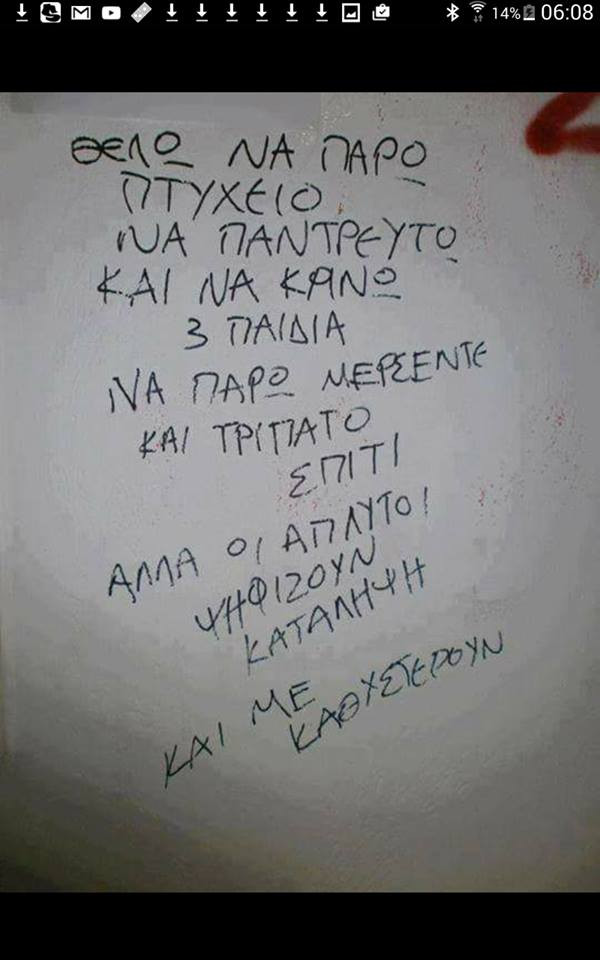 14% 06:08
ΘΕΛΩ ΝΑ ΠΑΡΩ
ΠΤΥΧΕΙΟ
ΝΑ ΠΑΝΤΡΕΥΤΩ
ΚΑΙ ΝΑ ΚΑΝΩ
3 ΠΑΙΔΙΑ
ΝΑ ΠΑΡΩ ΜΕΡΣΕΝΤΕ
ΚΑΙ ΤΡΙΠΑΤΟ
ΣΠΙΤΙ
ΑΛΛΑ ΟΙ ΑΠΛΥΤΟΙ
ΨΗΦΙΖΟΥΝ
ΚΑΤΑΛΗΨΗ
ΚΑΙ ΜΕ
ΚΑΘΥΣΤΕΡΟΥΝ